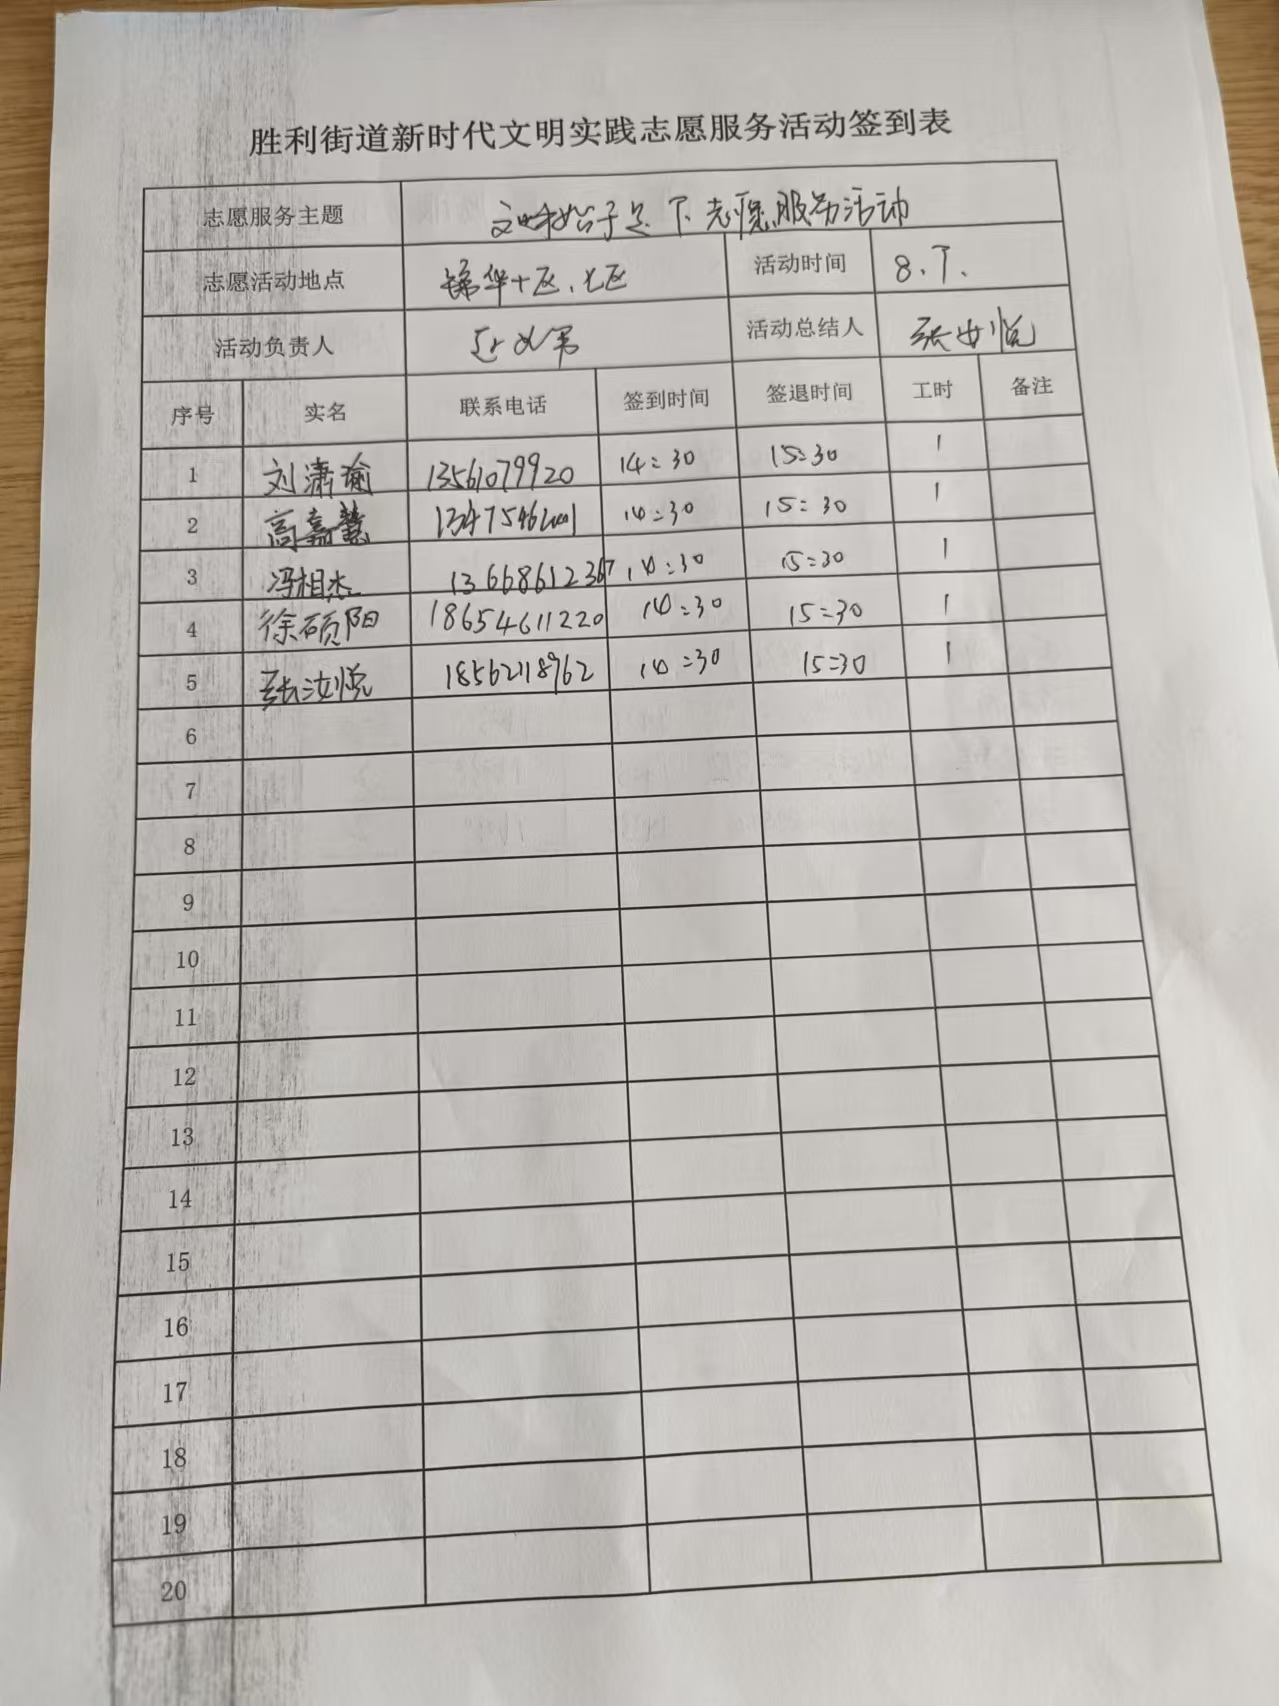 胜利街道新时代文明实践志愿服务活动签到表
志愿服务主题 始于足下志愿服务活动
志愿活动地点 锦华十区、七区 活动时间 8.7.
活动负责人 活动总结人 张女悦
序号 实名 联系电话 签到时间 签退时间 工时 备注
1 刘潇瑜 13561079920 14:30 15:30 1
2 高嘉慧 14:30 15:30 1
3 冯相杰 13668612367 14:30 15:30 1
4 徐硕阳 18654611220 14:30 15:30 1
5 张汝悦 18562118962 14:30 15:30 1
6
7
8
9
10
11
12
13
14
15
16
17
18
19
20